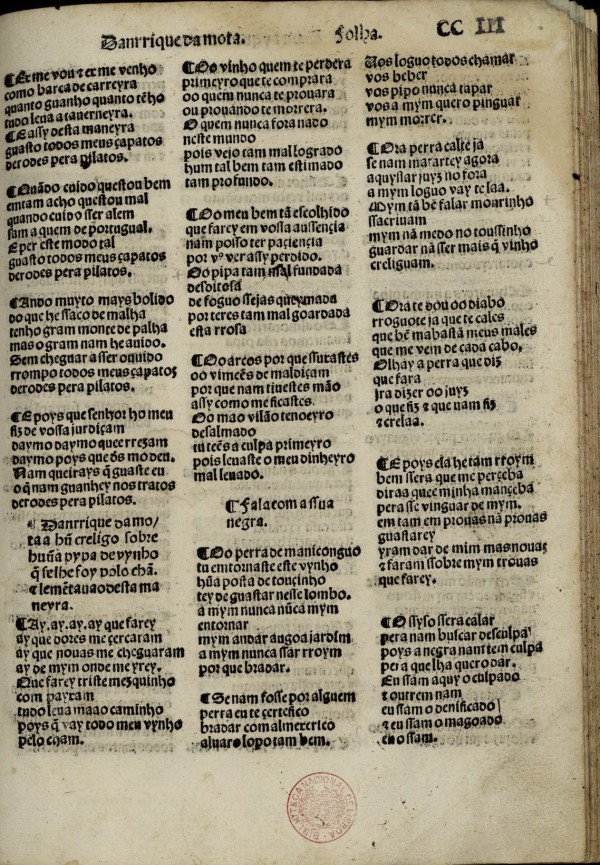 Danrrique da mota.
Folha.
CC III
¶ Et me vou & et me venho
como barca de carreyra
quanto guanho quanto tẽho
tudo leua a tauerneyra.
E assy desta maneyra
guasto todos meus çapatos
derodes pera pilatos.
¶ Quãdo cuido questou bem
emtam acho questou mal
quando cuido sser alem
sam a quem de portugal.
E per este modo tal
guasto todos meus çapatos
derodes pera pilatos.
¶ Ando muyto mays bolido
do que he ssaco de malha
tenho gram monte de palha
mas o gram nam he auido.
Sem cheguar a sser oquido
rrompo todos meus çapatos
derodes pera pilatos.
¶ E poys que senhor ho meu
fiz de vossa jurdiçam
daymo daymo quee rrezam
daymo poys que ds̃ mo deu.
Nam queirays q̃ guaste eu
o q̃ nam guanhey nos tratos
derodes pera pilatos.
¶ Danrrique da mo/
ta a hũ creligo sobre
hũa pypa de vynho
q̃ selhe foy polo chã.
& lemẽtauao desta ma
neyra.
¶ Ay. ay. ay. ay que farey
ay que dores me cercaram
ay que nouas me cheguaram
ay de mym onde me yrey.
Que farey triste mezquinho
com payxam
tudo leua mao caminho
poys q̃ vay todo meu vynho
pelo cham.
¶ Oo vinho quem te perdera
primeyro que te comprara
oo quem nunca te prouara
ou prouando te morrera.
O quem nunca fora nado
neste mundo
pois vejo tam mal logrado
hum tal bem tam estimado
tam profundo.
¶ Oo meu bem tã escolhido
que farey em vossa aussençia
nam posso ter paçiençia
por vs̃ ver assy perdido.
Oo pipa tam mal fundada
desditosa
de foguo ssejas queymada
por teres tam mal goardada
esta rrosa
¶ Oo arcos por que ssurastes
oo vimeẽs de maldiçam
por que nam tiuestes mão
assy como me ficastes.
Oo mao vilão tenoeyro
desalmado
tu teẽs a culpa primeyro
pois leuaste o meu dinheyro
mal leuado.
¶ Fala com a ssua
negra.
¶ Oo perra de maniconguo
tu emtornaste este vynho
hũa posta de touçinho
tey de guastar nesse lombo.
a mym nunca nũca mym
entornar
mym andar augoa jardim
a mym nunca ssar rroym
por que bradar.
¶ Se nam fosse por alguem
perra eu te çertefico
bradar com almexerico
aluaro lopo tam bem.
Uos loguo todos chamar
vos beber
vos pipo nunca tapar
vos a mym quero pinguar
mym morrer.
¶ Ora perra calte ja
se nam matartey agora
aquystar juyz no fora
a mym loguo vay te laa.
Mym tã bẽ falar mourinho
ssacriuam
mym nã medo no toussinho
guardar nã sser mais q̃ vinho
creliguam.
¶ Ora te dou oo diabo
rroguote ja que te cales
que bẽ mabastã meus males
que me vem de cada cabo.
Olhay a perra que diz
que fara
jra dizer oo juyz
o que fiz & que nam fiz
& crelaa.
¶ E poys ela he tam rroym
bem ssera que me perçeba
diraa quee minha mançeba
pera sse vinguar de mym.
em tam em prouas nã prouas
guastarey
yram dar de mim mas nouas
& faram ssobre mym trouas
que farey.
¶ O ssyso ssera calar
pera nam buscar desculpa
poys a negra nam tem culpa
pera que lha quero dar.
Eu ssam aquy o culpado
& outrem nam
eu ssam o denificado
& eu ssam o magoado
eu o ssam.
BIBLIOTECA NACIONAL DE LISBOA